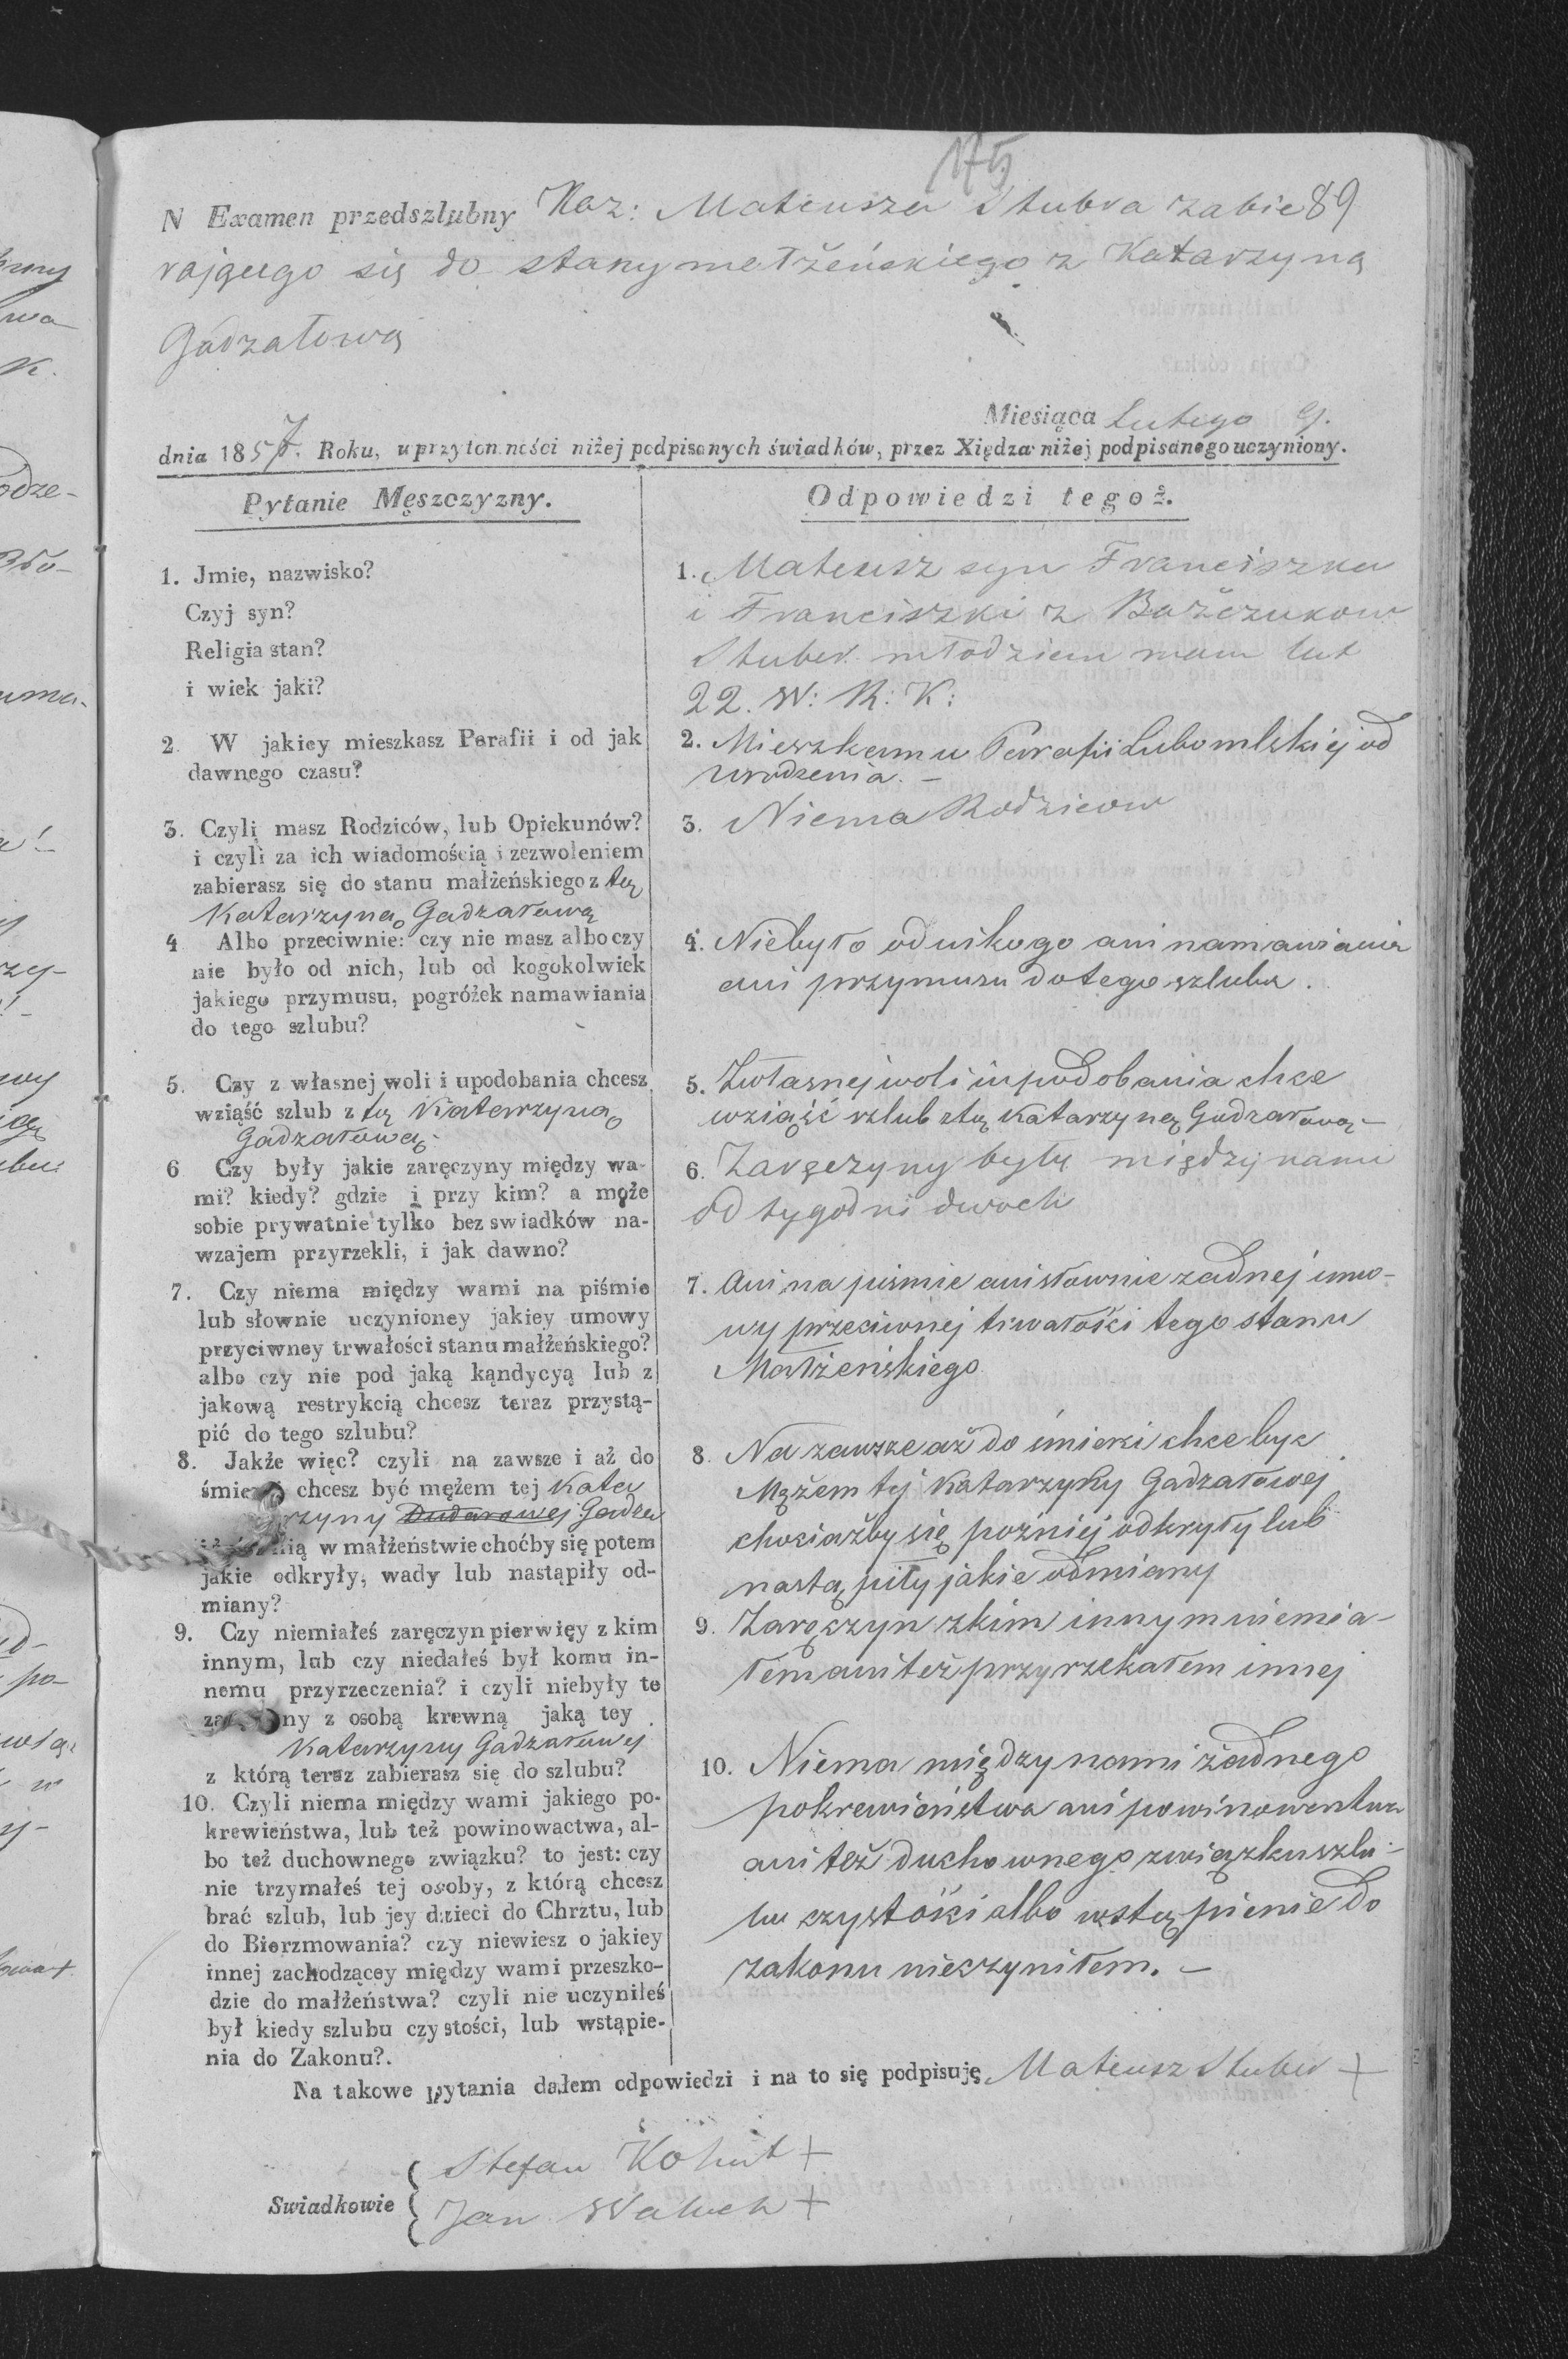 175
N Examen przedszlubny Kaz: Mateusza Stubra zabie 89
rającego się do stany małżeńskiego z Katarzyną
Gadzałową
Miesiąca Lutego 9.
dnia 1857. Roku, w przytomności niżej podpisanych świadków, przez Xiędza niżej podpisanego uczyniony.
Pytanie Męszczyzny.
1. Jmie, nazwisko?
Czyj syn?
Religia stan?
i wiek jaki?
2. W jakiey mieszkasz Parafii i od jak
dawnego czasu?
3. Czyli masz Rodziców, lub Opiekunów?
i czyli za ich wiadomością i zezwoleniem
zabierasz się do stanu małżeńskiego z tą
Katarzyną Gadzałową
4 Albo przeciwnie: czy nie masz albo czy
nie było od nich, lub od kogokolwiek
jakiego przymusu, pogróżek namawiania
do tego szlubu?
5. Czy z własnej woli i upodobania chcesz
wziąść szlub z tą Katarzyną
Gadzałową.
6 Czy były jakie zaręczyny między wa-
mi? kiedy? gdzie i przy kim? a może
sobie prywatnie tylko bez swiadków na-
wzajem przyrzekli, i jak dawno?
7. Czy niema między wami na piśmie
lub słownie uczynioney jakiey umowy
przyciwney trwałości stanu małżeńskiego?
albo czy nie pod jaką kąndycyą lub z
jakową restrykcią chcesz teraz przystą-
pić do tego szlubu?
8. Jakże więc? czyli na zawsze i aż do
śmie chcesz być mężem tej Kata
rzyny Dudarowej Gadza
nią w małżeństwie choćby się potem
jakie odkryły, wady lub nastąpiły od-
miany?
9. Czy niemiałeś zaręczyn pierwięy z kim
innym, lub czy niedałeś był komu in-
nemu przyrzeczenia? i czyli niebyły te
za ny z osobą krewną jaką tey
Katarzyny Gadzałowej
z którą teraz zabierasz się do szlubu?
10. Czyli niema między wami jakiego po-
krewieństwa, lub też powinowactwa, al-
bo też duchownego związku? to jest: czy
nie trzymałeś tej osoby, z którą chcesz
brać szlub, lub jey dzieci do Chrztu, lub
do Bierzmowania? czy niewiesz o jakiey
innej zachodzącey między wami przeszko-
dzie do małżeństwa? czyli nie uczyniłeś
był kiedy szlubu czystości, lub wstąpie-
nia do Zakonu?.
Odpowiedzi tegoż.
1. Mateusz syn Franciszka
i Franciszki z Bażczukow
Stuber młodzien mam lat
22. W: R: K:
2. Mieszkam u Parafii Lubomlskiej od
urodzenia. -
3. Niema Rodzicow
4. Niebyło od nikogo ani namawiania
ani przymusu do tego szlubu.
5. Zwłasnej woli i upodobania chce
wziąść szlub ztą Katarzyną Gadzałową -
6. Zaręczyny były między nami
od tygodni dwoch
7. Ani na piśmie ani słownie zadnej umo-
wy przeciwnej trwałości tego stanu
Małżeńskiego
8. Na zawsze aż do śmierci chce byc
Mężem tej Katarzyny Gadzałowej
chociażby się pożniej odkryły lub
nastąpiły jakie odmiany
9. Zaręczyn zkim innym niemia-
łem ani też przyrzekałem innej
10. Niema między nami żadnego
pokrewieństwa ani powinowactwa
ani też duchownego związku szlu-
bu czystości albo wstąpienie do
zakonu nieczyniłem. -
Na takowe pytania dałem odpowiedzi i na to się podpisuję Mateusz Stuber +
Swiadkowie
Stefan Kohut +
Jan Waluch +